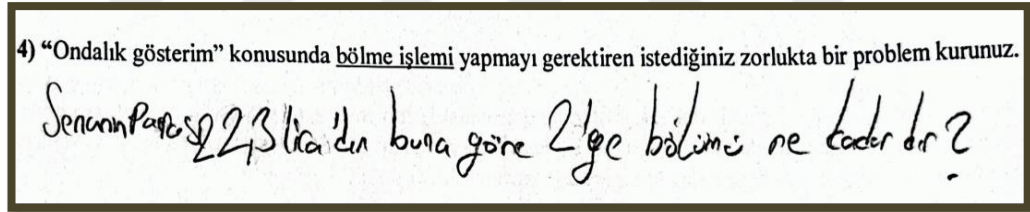 4) “Ondalık gösterim” konusunda bölme işlemi yapmayı gerektiren istediğiniz zorlukta bir problem kurunuz.
Senanın Parası 22,3 liraidır buna göre 2'ye bölümü ne kadar dır?